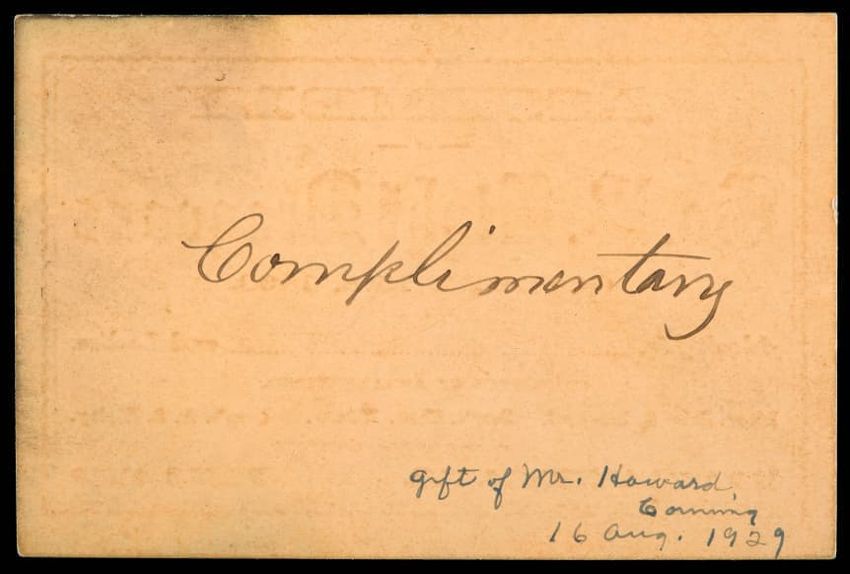 Complimentary
gift of Mr. Howard
Corning
16 Aug. 1929